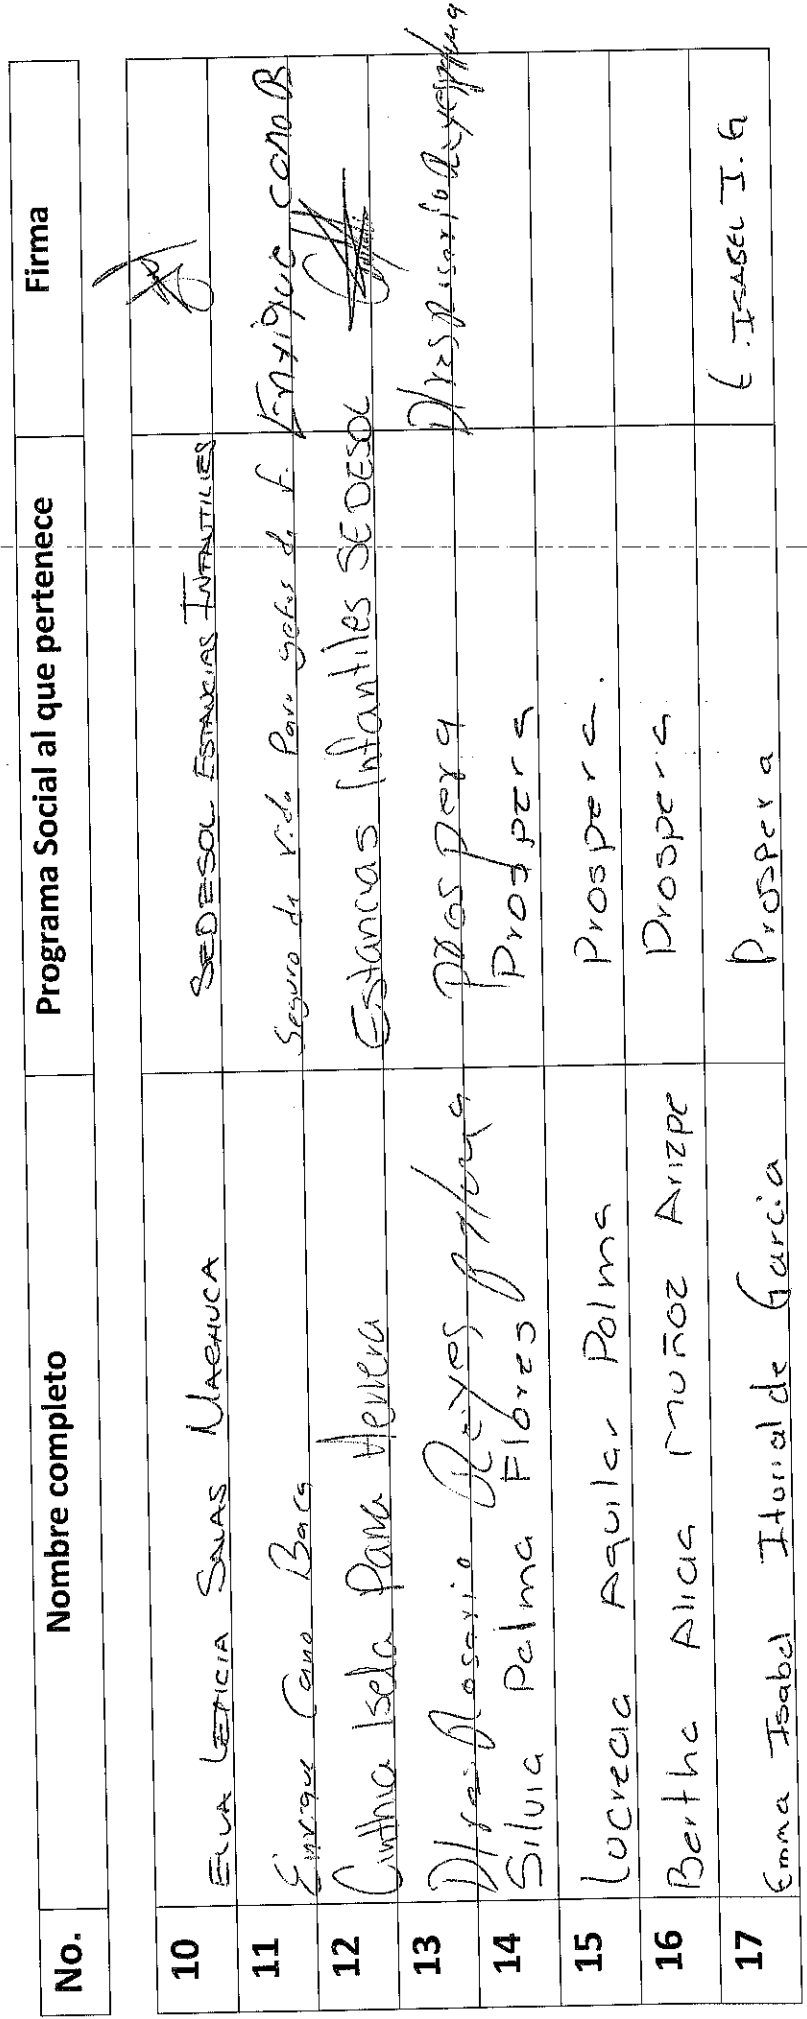 No. Nombre completo Programa Social al que pertenece Firma
10 ELVA LETICIA SALAS MACHUCA SEDESOL ESTANCIAS INFANTILIES
11 Enrique Cano Baca Seguro de Vida Para gefes de f. Enrique cano B
12 Cinthia Isela Parra Herrera Estancias Infantiles SEDESOL
13 Rosario Reyes prospera
14 Silvia Palma Flores Prospera
15 Lucrecia Aguilar Palma Prospera.
16 Bertha Alicia Muñoz Arizpe Prospera
17 Emma Isabel Iturialde Garcia Prospera E. ISABEL I. G